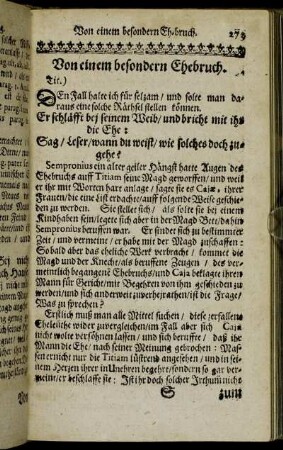 Von einem besondern Ehbruch. 273
Von einem besondern Ehebruch.
Tit.)
DEn Fall halte ich für selzam/ und solte man da-
raus eine solche Räthsel stellen können.
Er schläfft bei seinem Weib/ und bricht mit ihr
die Ehe:
Sag/ Leser/ wann du weist/ wie solches doch zu-
gehe?
Sempronius ein alter geiler Hängst hatte Augen des
Ehebruchs auff Titiam seine Magd geworffen/ und weil
er ihr mit Worten hart anlag/ sagte sie es Cajæ, ihrer
Frauen/ die eine List erdacht/ auff folgende Weis geschie-
den zu werden. Sie stellet sich/ als solte sie bei einem
Kindhaben sein/ legte sich aber in der Magd Bete/ dahin
Sempronius beruffen war. Er findet sich zu bestimmter
Zeit/ und vermeine/ er habe mit der Magd zuschaffen:
So bald aber das eheliche Wert verbracht/ kommet die
Magd und der Knecht/ als beruffene Zeugen/ des ver-
meintlich begangenē Ehebruchs/ und Caja beklagte ihren
Mann für Gerichte/ mit Begehren von ihm geschieden zu
werden/ und sich anderweit zu verheyrathen/ ist die Frage/
Was zu sprechen?
Erstlich muß man alle Mittel suchen/ diese zerfallene
Eheleuthe wider zu vergleichen/ im Fall aber sich Caja
nicht wolte versöhnen lassen/ und sich beruffte/ daß ihr
Mann die Ehe/ nach seiner Meinung gebrochen: Mas-
sen er nicht nur die Titiam lüstrend angesehen/ und in sei-
nem Herzen ihrer in Unehren begehre/ sondern so gar ver-
mein/ er beschlaffe sie: Ist ihr doch solcher Irthum nicht
S zum